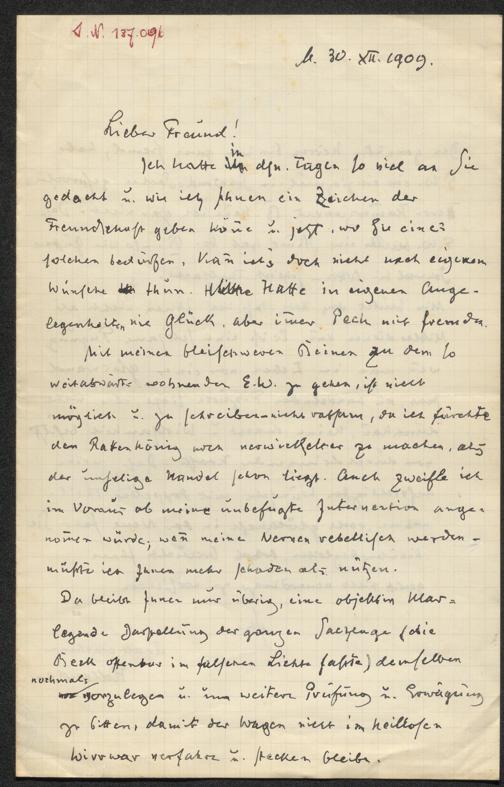 I.N. 137.091
M. 30. XII. 1909.
Lieber Freund!
Ich hatte in dsn. Tagen so viel an Sie
gedacht u. wie ich Ihnen ein Zeichen der
Freundschaft geben könne u. jetzt, wo Sie eines
solchen bedürfen, kan ich's doch nicht nach eigenem
Wunsche thun. Hatte in eigenen Ange-
legenheiten nie Glück, aber imer Pech mit fremden.
Mit meinen bleischweren Beinen zu dem so
weitabwärts wohnenden E.W. zu gehen, ist nicht
möglich u. zu schreiben nicht ratsam, da ich fürchte
den Rattenkönig noch verwickelter zu machen, als
der unselige Handel schon liegt. Auch zweifle ich
im Voraus ob meine unbefugte Intervention ange-
nomen würde; wen meine Nerven rebellisch werden –
müßte ich Ihnen mehr schaden als nützen.
Da bleibt Ihnen nur übrig, eine objektiv klar-
legende Darstellung der ganzen Sachlage (die
offenbar im falschen Lichte faßte) demselben
nochmals
vorzulegen u. um weitere Prüfung u. Erwägung
zu bitten, damit der Wagen nicht im heillosen
Wirrwar verfahre u. stecken bleibe.